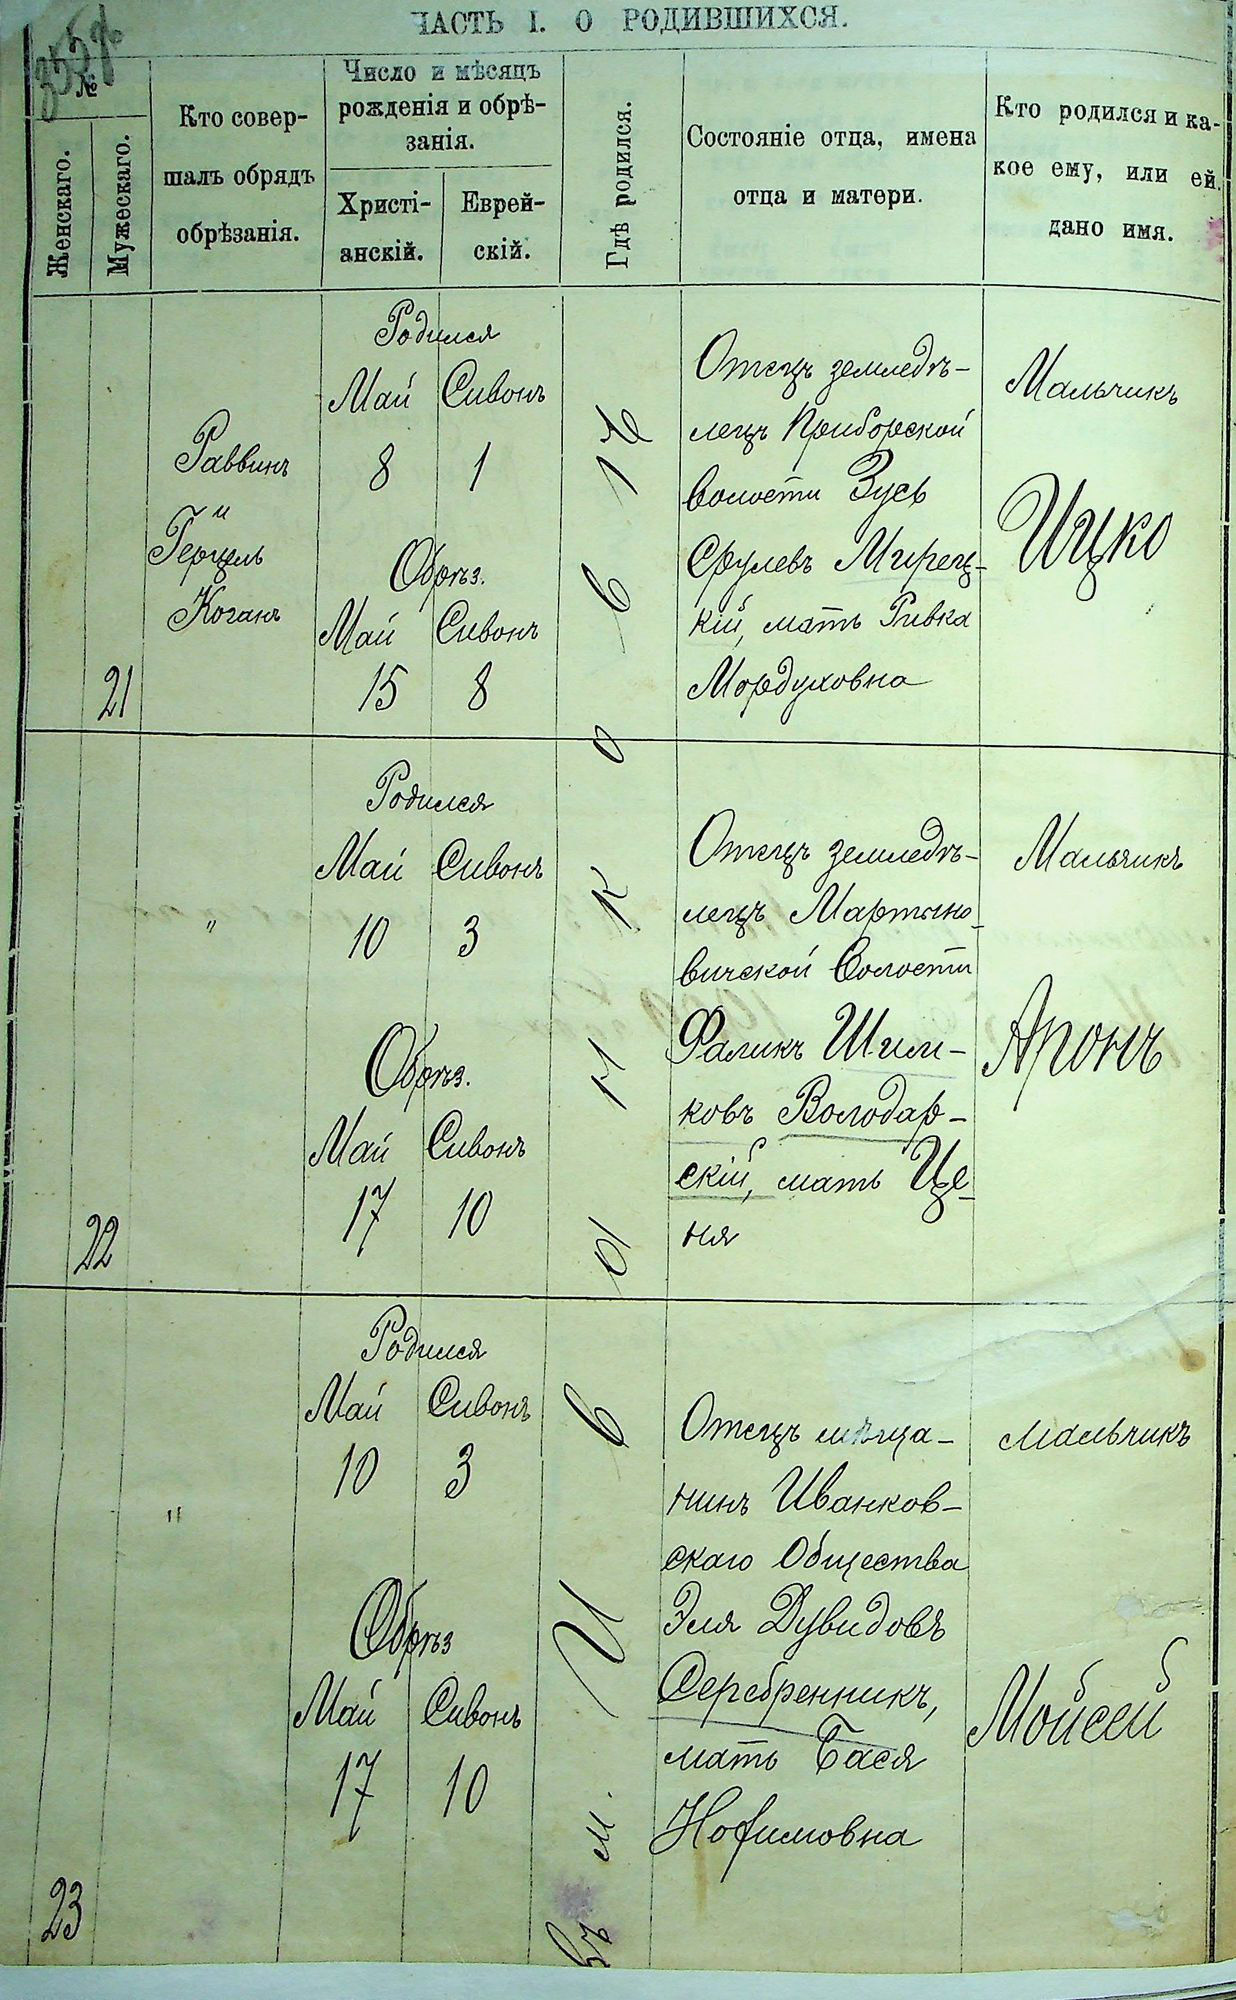 ЧАСТЬ I. О РОДИВШИХСЯ.
№
Женскаго.
Мужескаго.
Кто совер-
шалъ обрядъ
обрѣзанія.
Число и мѣсяцъ
рожденія и обрѣ-
занія.
Христі-
анскій.
Еврей-
скій.
Гдѣ родился.
Состояніе отца, имена
отца и матери.
Кто родился и ка-
кое ему, или ей
дано имя.
21
Раввинъ
и
Герцель
Коганъ
Родился
Май Сивонъ
8 1
Обрѣз.
Май Сивонъ
15 8
Отецъ земледѣ-
лецъ Приборской
волости Зусь
Срулевъ Мирец-
кій, мать Ривка
Мордуховна
Мальчикъ
Ицко
22
"
Родился
Май Сивонъ
10 3
Обрѣз.
Май Сивонъ
17 10
Отецъ земледѣ-
лецъ Мартыно-
вичской Волости
Фаликъ Шим-
ковъ Володар-
скій, мать Це-
ня
Мальчикъ
Аронъ
23
"
Родился
Май Сивонъ
10 3
Обрѣз
Май Сивонъ
17 10
Въ м. Ивонковѣ
Отецъ мѣща-
нинъ Иванков-
скаго Общества
Эля Дувидовъ
Серебренникъ,
мать Бася
Нофимовна
Мальчикъ
Мойсей